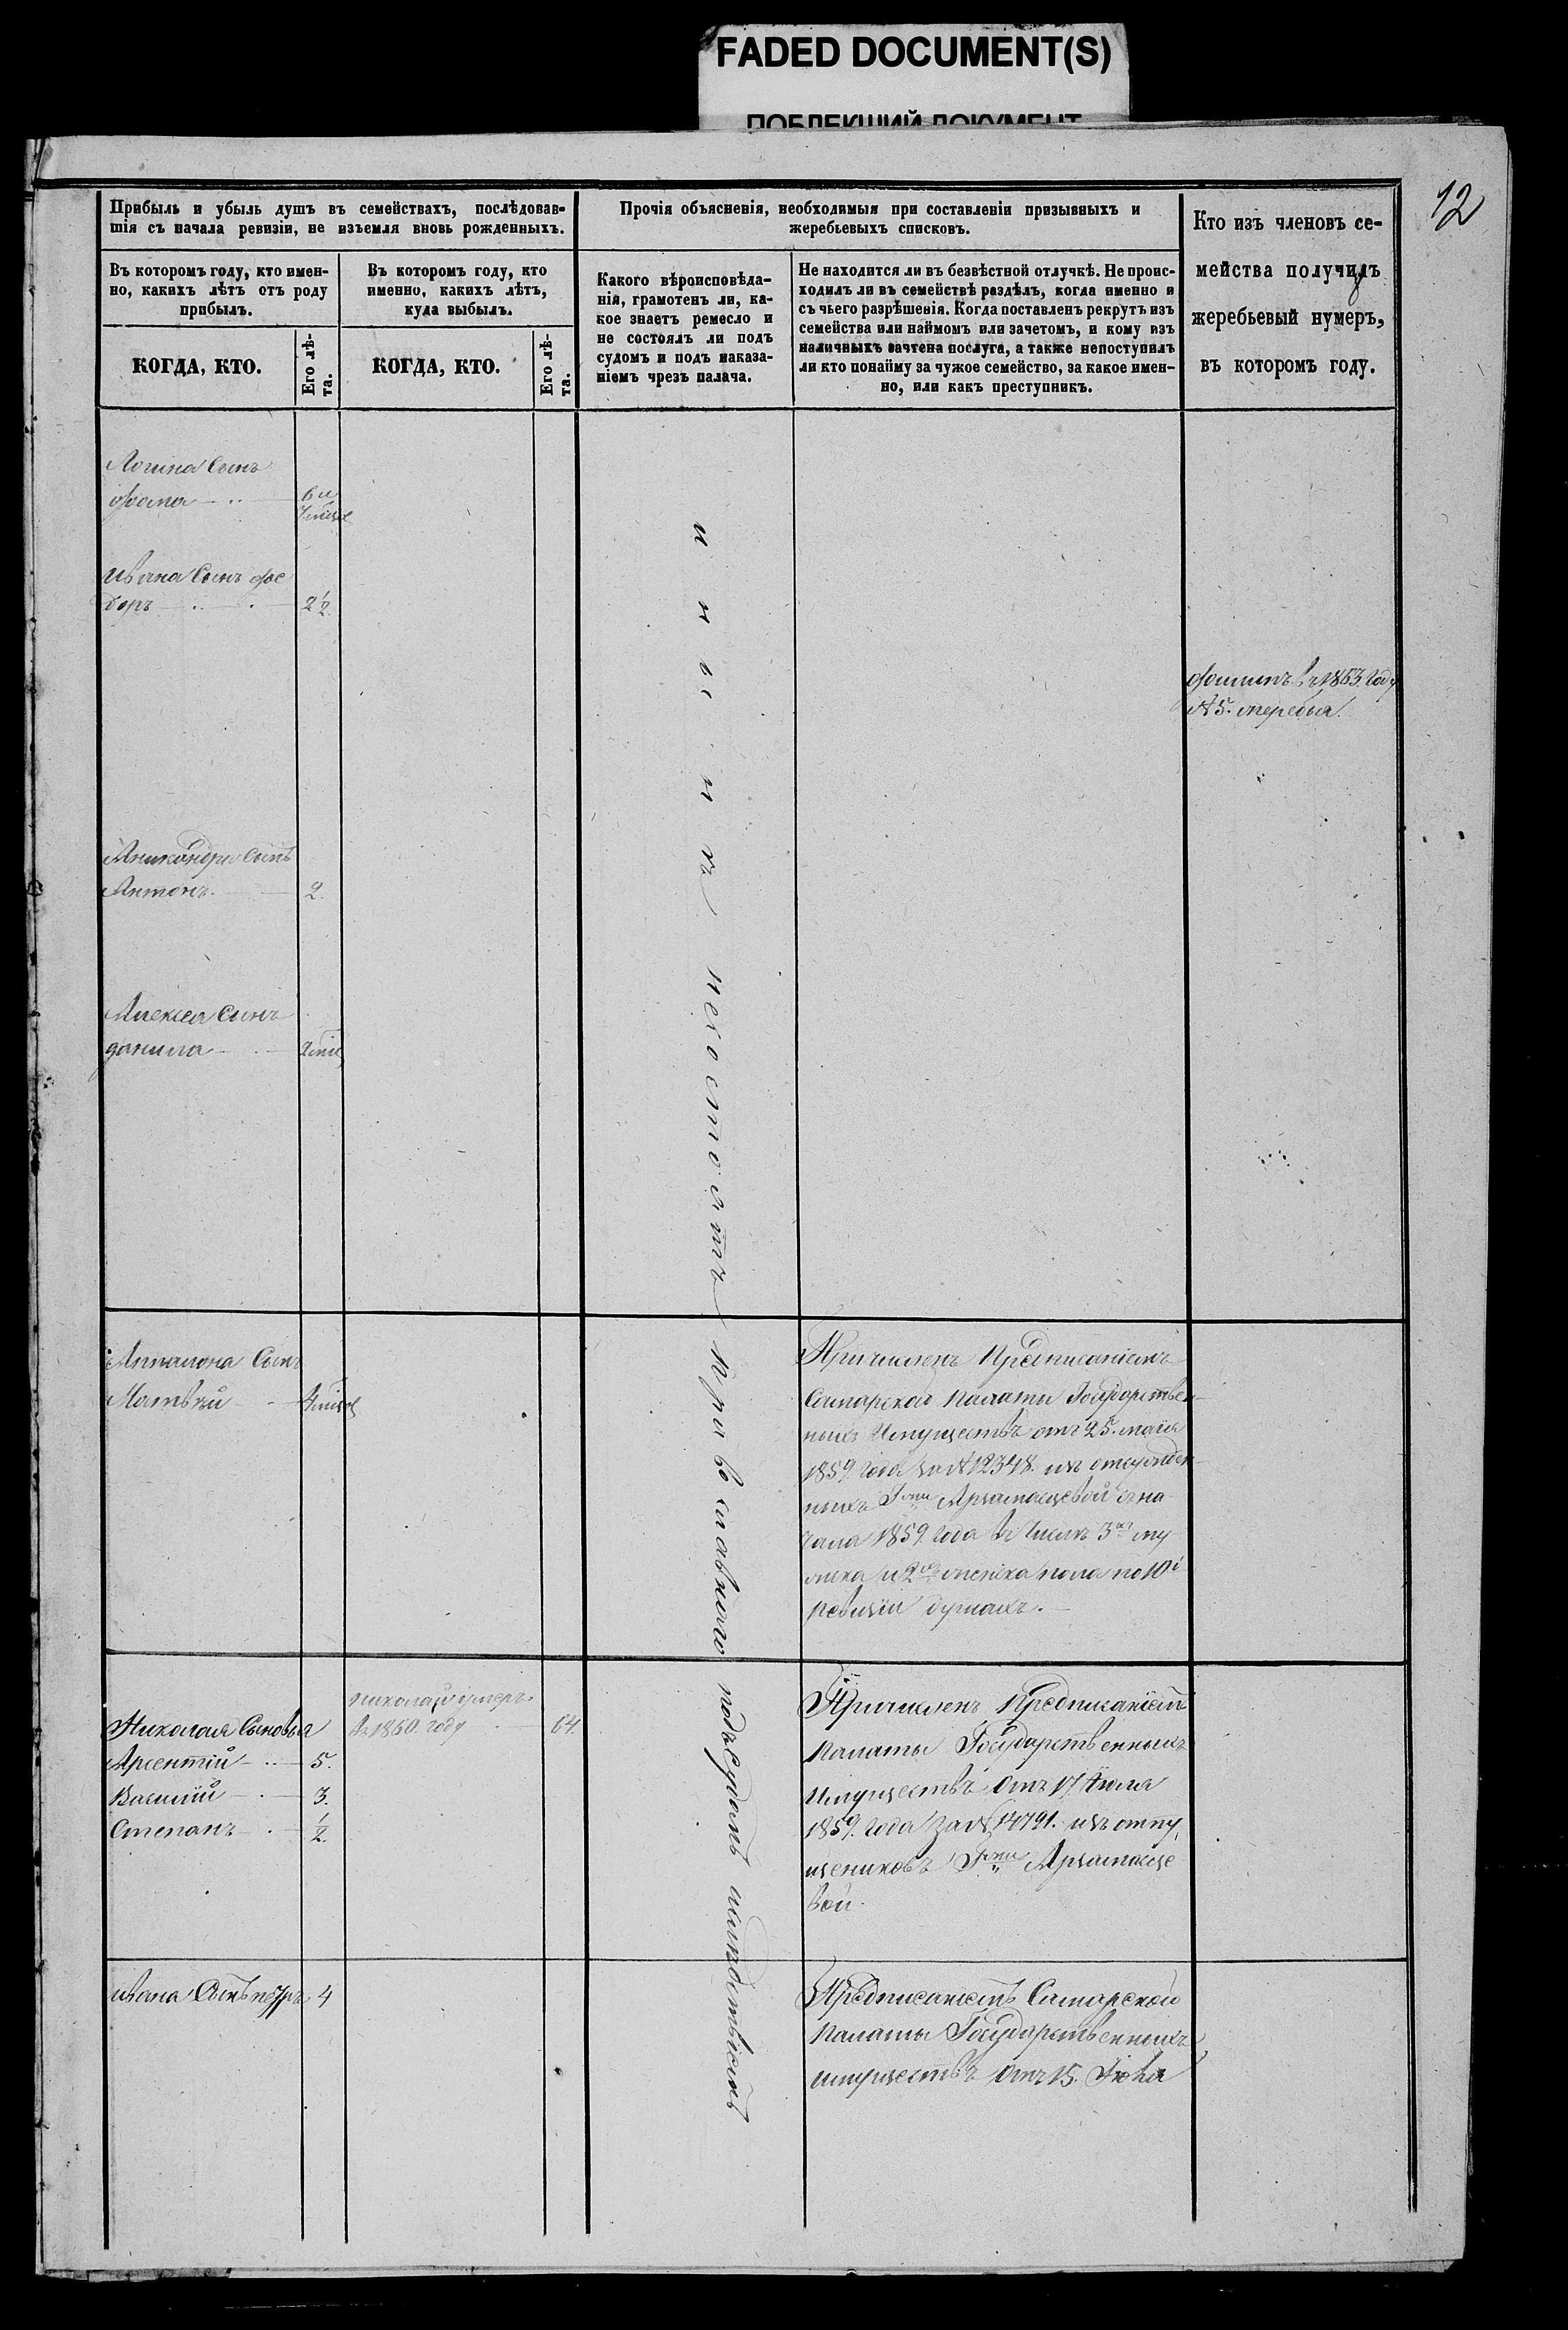 FADED DOCUMENT(S)
ПОБЛЕКШИЙ ДОКУМЕНТ
12
Прибыль и убыль душъ въ семействахъ, послѣдовав-
шія съ начала ревизіи, не изъемля вновь рожденныхъ.
Прочія объясненія, необходимыя при составленіи призывныхъ и
жеребьевыхъ списковъ.
Кто изъ членовъ се-
мейства получилъ
жеребьевый нумеръ,
въ которомъ году.
Въ которомъ году, кто имен-
но, какихъ лѣтъ отъ роду
прибылъ.
Въ которомъ году, кто
именно, какихъ лѣтъ,
куда выбылъ.
Какого вѣроисповѣда-
нія, грамотенъ ли, ка-
кое знаетъ ремесло и
не состоялъ ли подъ
судомъ и подъ наказа-
ніемъ чрезъ палача.
Не находится ли въ безвѣстной отлучкѣ. Не проис-
ходилъ ли въ семействѣ раздѣлъ, когда именно и
съ чьего разрѣшенія. Когда поставленъ рекрутъ изъ
семейства или наймомъ или зачетомъ, и кому изъ
наличныхъ зачтена послуга, а также непоступилъ
ли кто понайму за чужое семейство, за какое имен-
но, или какъ преступникъ.
КОГДА, КТО.
Его лѣ-
та.
КОГДА, КТО.
Его лѣ-
та.
Логина Сынъ
Фома 6 и
Ивана Сынъ Фе
доръ 2½
въ 1863 году
№ 5. жеребья
Никандра Сынъ
Антонъ 2.
Алексея Сынъ
Данила
Православнаго подъ Судомъ и слѣдствіемъ
несостоятъ
Сынъ
Матвѣй
Причисленъ Предписаніемъ
Самарской Палаты Государствен
ныхъ Имуществъ отъ 25. мая
1859 года за № 12348. изъ отсужден
ныхъ Г-жи Арзамасцевой съ на
чала 1859. года въ числѣ 3хъ му
жска и 2хъ женска пола по 10й
ревизіи душахъ.
Николая Сыновья
Арсентій 5.
Василій 3.
Степанъ ½
Николай умеръ
въ 1860. году 64
Причисленъ Предписаніемъ
Палаты Государственныхъ
Имуществъ Отъ 17 Іюля
1859. года За № 14791. изъ отпу
щениковъ Г-жи Арзамасце
вой.
Ивана Сынъ Петръ 4
Предписаніемъ Самарской
Палаты Государственныхъ
имуществъ Отъ 15.